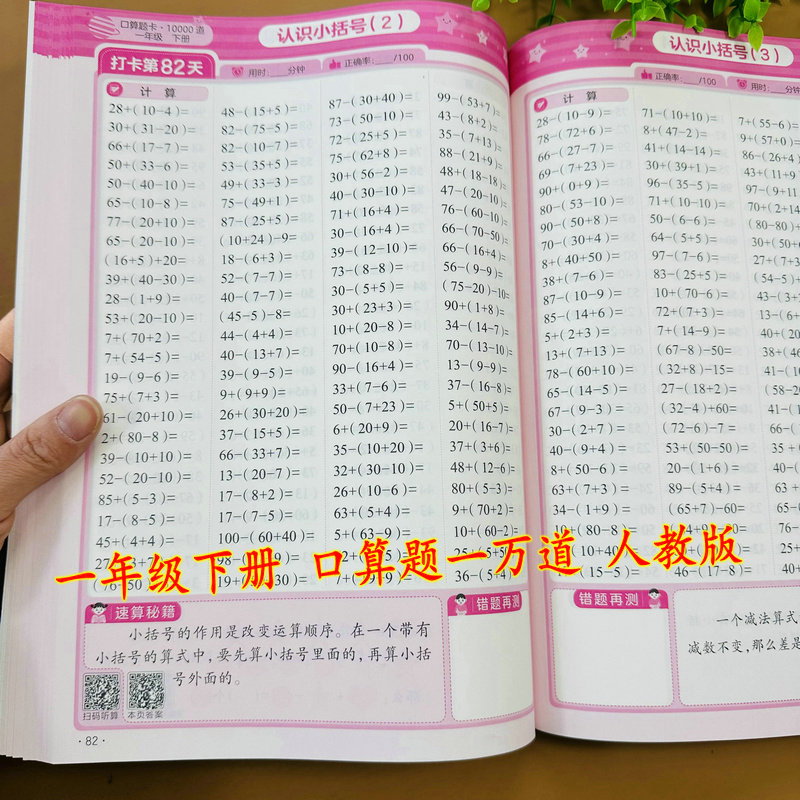 口算题卡·10000道
一年级 下册
认识小括号(2)
打卡第82天
用时:____分钟
正确率:____/100
计算
28+(10-4)=
30+(31-20)=
66+(17-7)=
50+(33-6)=
50-(40-10)=
65-(10-8)=
77-(20+10)=
65-(20-10)=
(16+5)+20=
39+(40-30)=
28-(1+9)=
53+(20-10)=
7+(70+2)=
7+(54-5)=
19-(9-6)=
75+(7+3)=
61-(20+10)=
2+(80-8)=
39-(10+10)=
52-(20-10)=
85+(5-3)=
17-(8-5)=
45+(4+4)=
48-(15+5)=
82-(75-5)=
82-(10-7)=
53-(35+5)=
49+(33-3)=
75-(49+1)=
87-(25+5)=
(10+24)-9=
18-(6+3)=
52-(7-7)=
40-(7-7)=
(45-5)-8=
44-(4+4)=
40-(13+7)=
39-(9-5)=
9+(9+9)=
26+(30+20)=
37-(15+5)=
66-(33+7)=
13-(20-7)=
17-(8+2)=
17-(7-5)=
100-(60+40)=
87-(30+40)=
73-(50-10)=
72-(25+5)=
75-(62+8)=
30+(56-2)=
40-(30-10)=
71+(16+4)=
30-(16+4)=
39-(12-10)=
73-(8-8)=
30-(5+5)=
30+(23+3)=
10+(20-8)=
70+(10-8)=
90-(16+4)=
33+(7-6)=
50-(7+23)=
6+(20+10)=
35-(10+20)=
32+(30-10)=
26+(10-6)=
63+(5+4)=
5+(63-9)=
99-(53+7)=
43-(8+2)=
35-(7+13)=
88-(21+9)=
48+(18-18)=
47-(20-10)=
76-(60-10)=
66-(70-50)=
66-(16+4)=
56-(9-9)=
(75-20)-10=
90+(1+8)=
34-(14-7)=
70-(13-10)=
13-(9-9)=
37-(16-8)=
5+(50+5)=
20+(16-7)=
37+(3+6)=
48+(12-6)=
80+(5-3)=
9+(70+2)=
10+(60-2)=
36-(5+4)=
一年级下册 口算题一万道 人教版
速算秘籍
小括号的作用是改变运算顺序。在一个带有
小括号的算式中,要先算小括号里面的,再算小括
号外面的。
扫码听算
本页答案
错题再测
·82·
认识小括号(3)
正确率:____/100
用时:____分钟
计算
28-(10-9)=
78-(72+6)=
66-(27-7)=
69-(7+23)=
90+(0+9)=
80-(53-10)=
90-(50+8)=
70-(30+4)=
8+(40+50)=
38+(7-6)=
87-(10-9)=
100-(16+4)=
5+(2+3)=
13+(7+13)=
78-(60+10)=
65-(14-5)=
67-(9-3)=
30-(2+7)=
40-(9+4)=
8+(50-6)=
63+(7+3)=
34-(1+9)=
71-(10+10)=
8+(47-2)=
41+(14-14)=
30+(39+1)=
96-(35-5)=
71+(10-10)=
50-(6-6)=
64-(5+5)=
97-(7-6)=
83-(25+5)=
10+(70-6)=
72+(7+3)=
7+(14-9)=
(67-8)-50=
(32+8)-15=
27-(18+2)=
(32-4)+60=
(72-6)-7=
53+(50-50)=
20-(1+6)=
89-(5+4)=
(65+7)-60=
46-(17-8)=
错题再测
一个减法算式
减数不变,那么差是